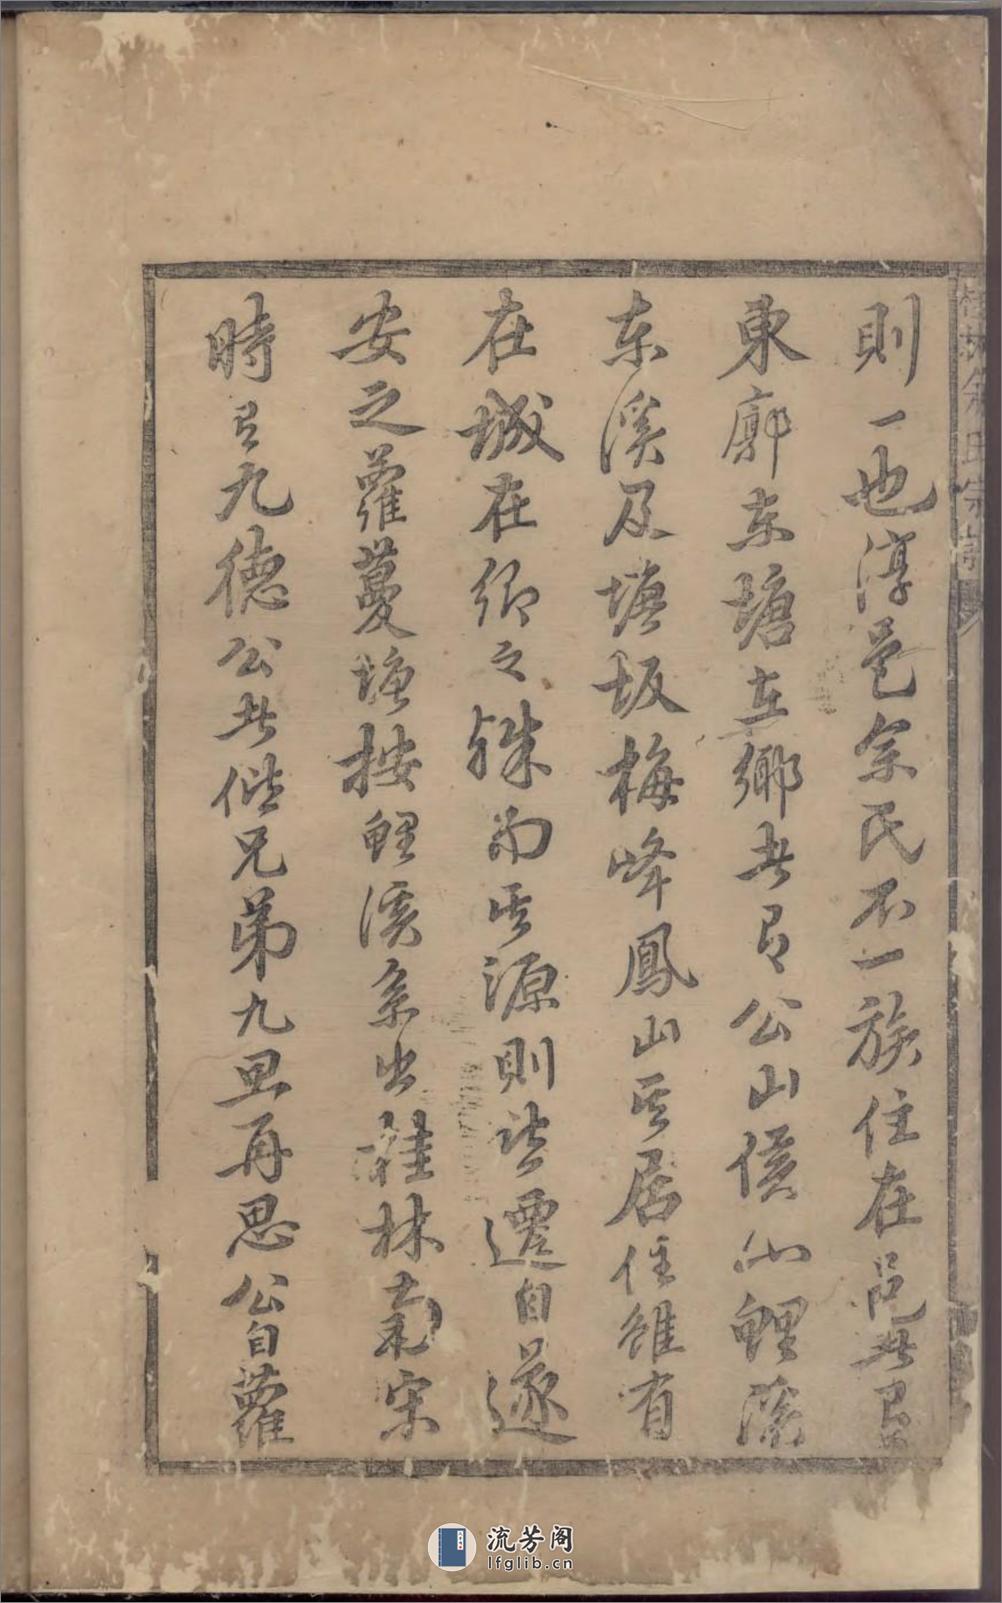 則一也淳邑余氏不一族住在邑者有
東廓東塘在鄉者有公山侯山鯉溪
東溪及塘坂梅峰鳳山其居住雖有
在城在鄉之殊而其源則皆遷自遂
安之蘿蔓塘按鯉溪系出桂林南宋
時有九德公者偕兄弟九思再思公自蘿
桂林余氏宗譜
流芳阁
lfglib.cn